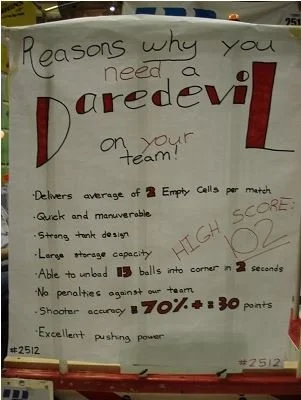 Reasons why you
need a
DaredeviL
on your
team!
·Delivers average of 2 Empty Cells per match
·Quick and manuverable
·Strong tank design
·Large storage capacity
HIGH SCORE:
102
·Able to unload 15 balls into corner in 2 seconds
·No penalties against our team
·Shooter accuracy = 70% + = 30 points
·Excellent pushing power
#2512
#2512
251